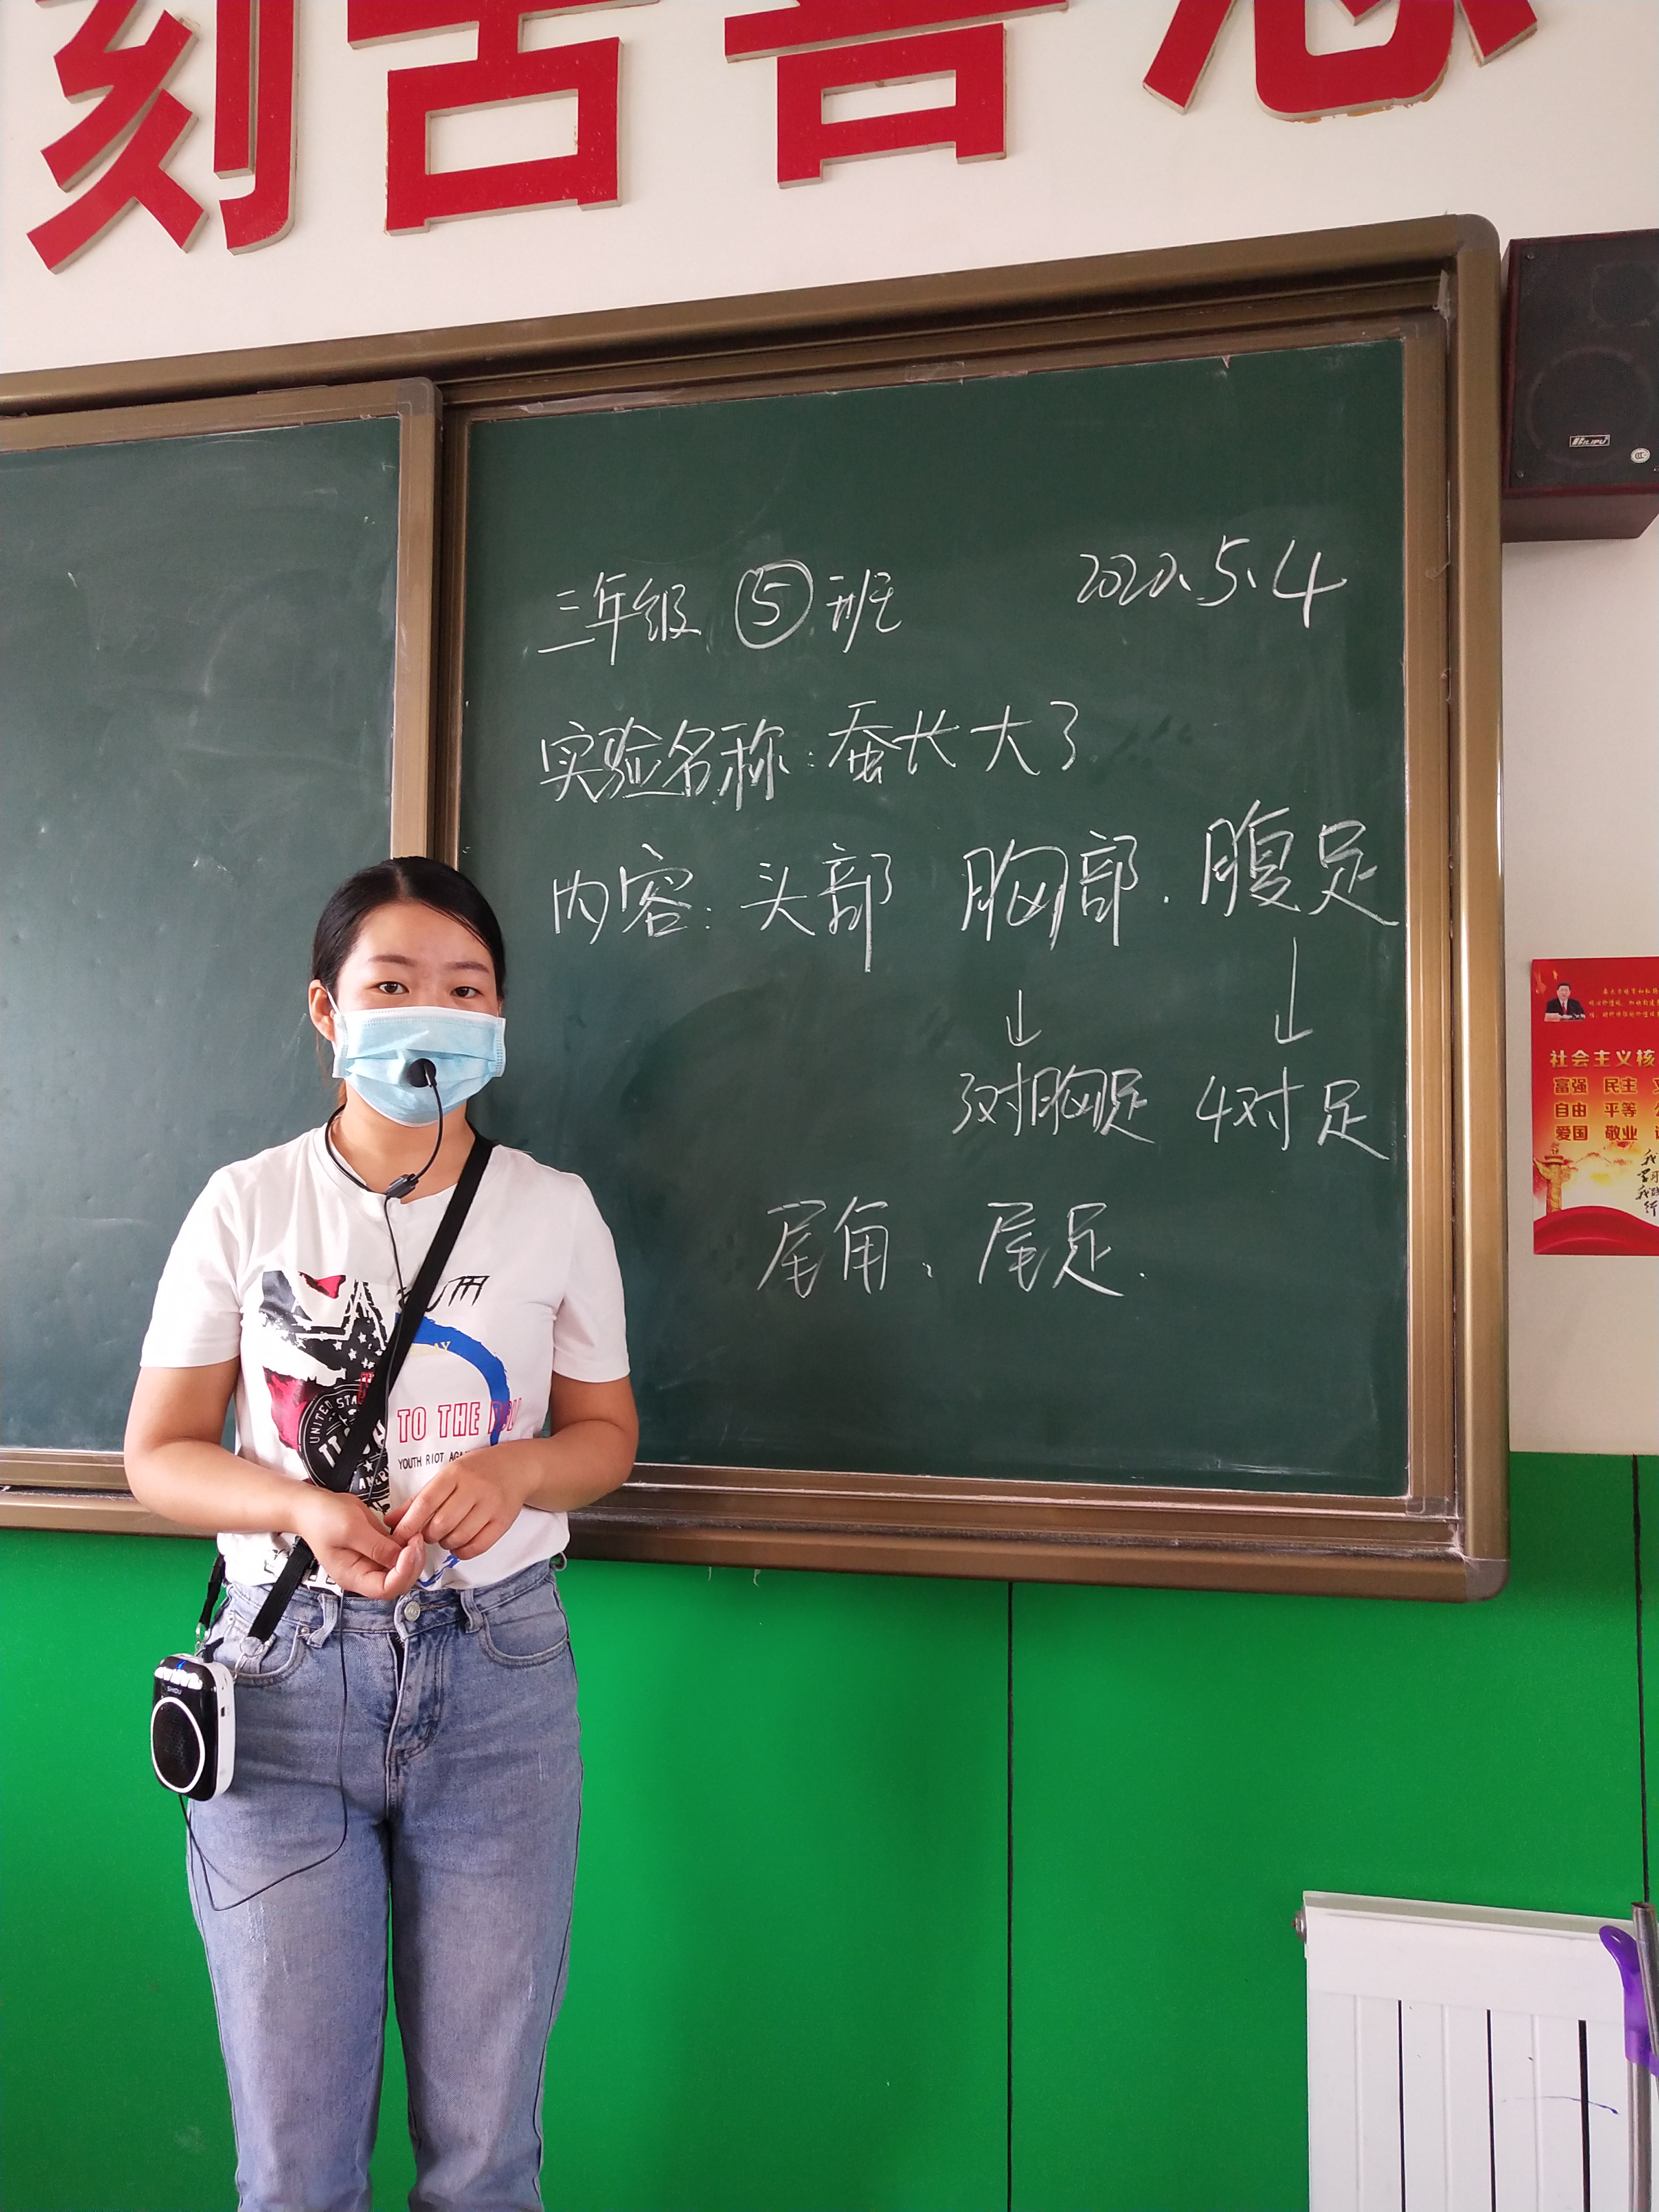 刻苦善思
三年级 ⑤ 班 2022.5.4
实验名称:蚕长大了
内容: 头部 胸部. 腹足
↓ ↓
3对胸足 4对足
尾角、尾足.
社会主义核
富强 民主
自由 平等
爱国 敬业
UNITED STA
TO THE
YOUTH RIOT AGA
SHIDU